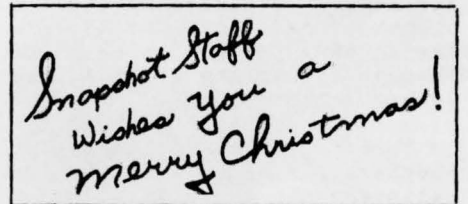 Snapshot Staff
Wishes You a
Merry Christmas!